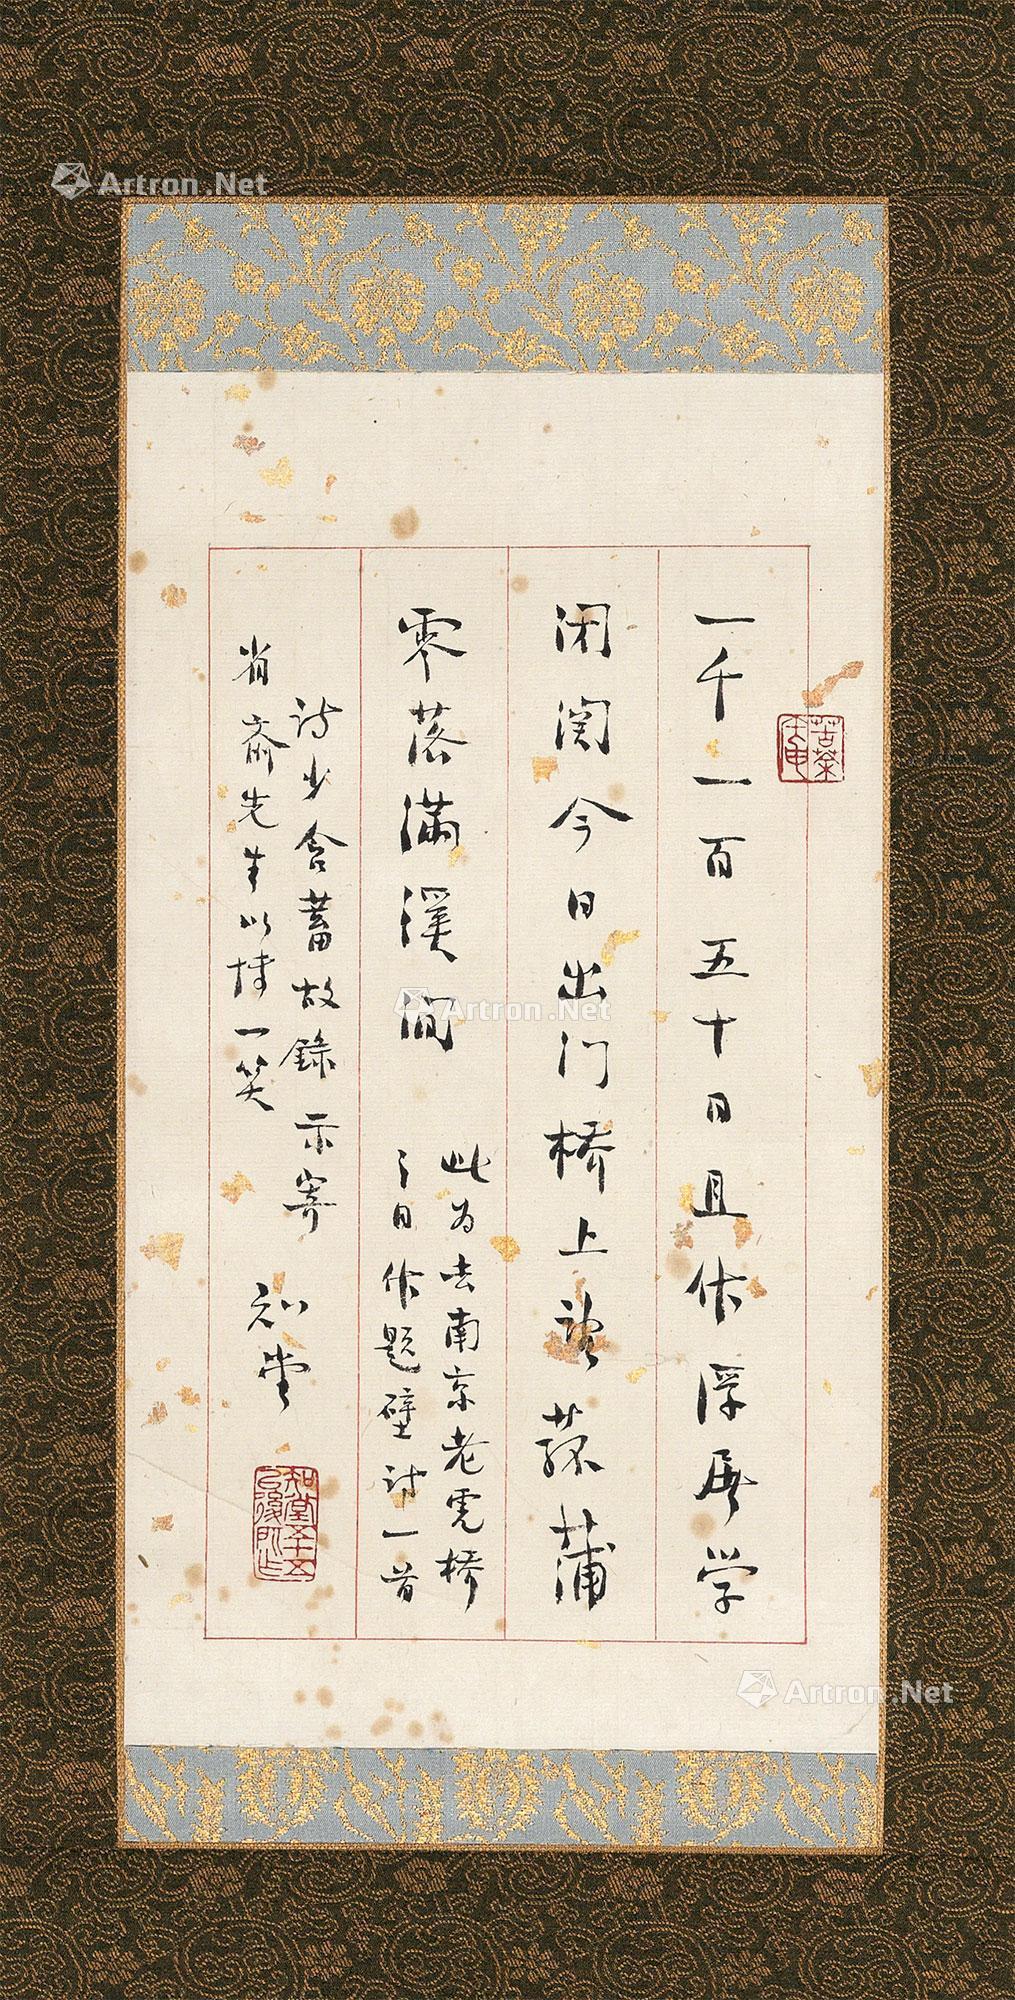 一千一百五十日且作浮屠学
闭关今日出门桥上望菰蒲
零落满溪间
此为去南京老虎桥
之日作题壁诗一首
诗少含蓄故录示寄
省斋先生以博一笑
知堂
苦茶庵
知堂五十五以后所作
Artron.Net
Artron.Net
Artron.Net